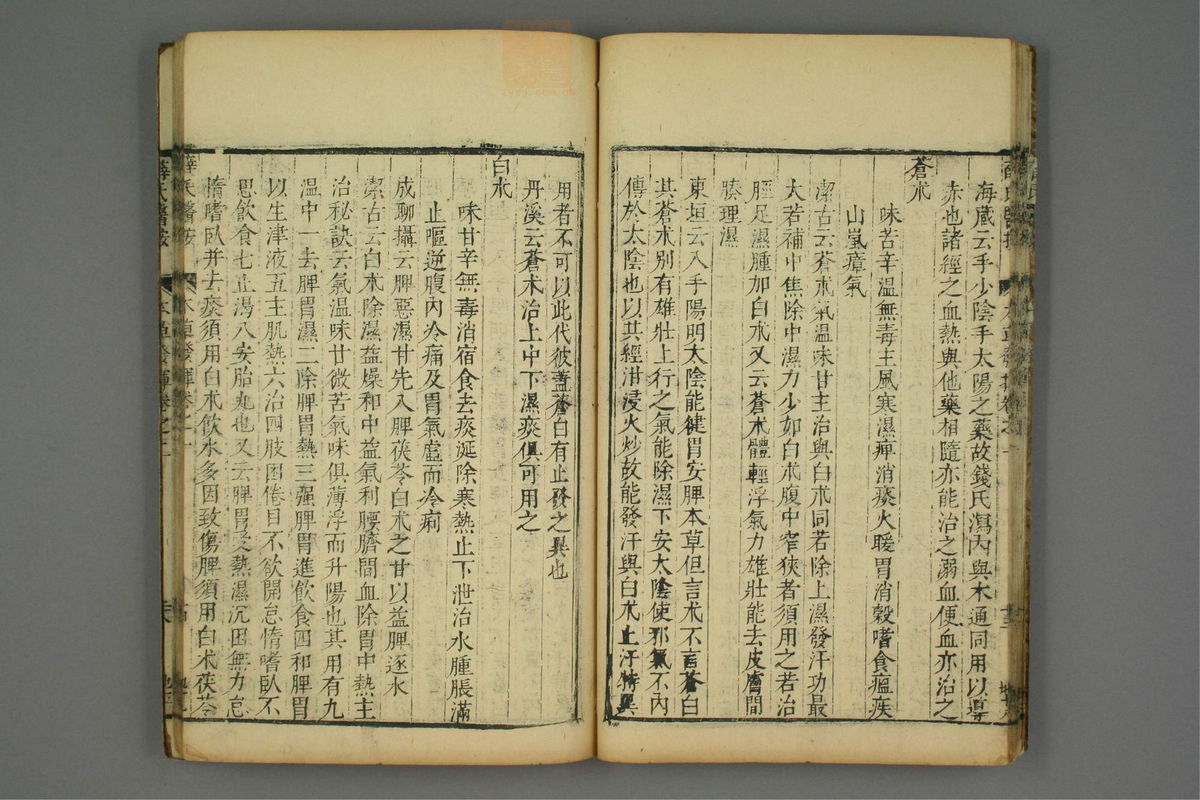 海藏云手少陰手太陽之藥故錢氏瀉丙與木通同用以導
赤也諸經之血熱與他藥相隨亦能治之溺血便血亦治之
蒼朮
味苦辛溫無毒主風寒濕痺消痰火暖胃消穀嗜食瘟疾
山嵐瘴氣
潔古云蒼朮氣溫味甘主治與白朮同若除上濕發汗功最
大若補中焦除中濕力少如白朮腹中窄狹者須用之若治
脛足濕腫加白朮又云蒼朮體輕浮氣力雄壯能去皮膚間
腠理濕
東垣云入手陽明太陰能健胃安脾本草但言朮不言蒼白
其蒼朮別有雄壯上行之氣能除濕下安太陰使邪氣不內
傳於太陰也以其經泔浸火炒故能發汗與白朮止汗特異
用者不可以此代彼蓋蒼白有止發之異也
丹溪云蒼朮治上中下濕痰俱可用之
白朮
味甘辛無毒消宿食去痰涎除寒熱止下泄治水腫脹滿
止嘔逆腹內冷痛及胃氣虛而冷痢
成聊攝云脾惡濕甘先入脾茯苓白朮之甘以益脾逐水
潔古云白朮除濕益燥和中益氣利腰臍間血除胃中熱主
治秘訣云氣溫味甘微苦氣味俱薄浮而升陽也其用有九
溫中一去脾胃濕二除脾胃熱三强脾胃進飲食四和脾胃
以生津液五主肌熱六治四肢困倦目不欲開怠惰嗜臥不
思飲食七止渴八安胎九也又云脾胃受熱濕沉困無力怠
惰嗜臥并去痰須用白朮飲水多因致傷脾須用白朮茯苓
薛氏醫按 本草發揮卷之一